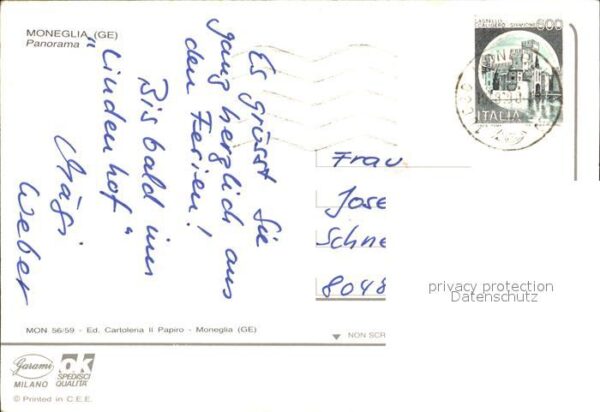 MONEGLIA (GE)
Panorama
Es grüsst Sie
ganz herzlich aus
den Ferien!
Bis bald im
"Lindenhof"
Mägi
Weber
CASTELLO
SCALIGERO - SIRMIONE
600
ITALIA
Frau
Jose
Schne
8048
privacy protection
Datenschutz
MON 56/59 - Ed. Cartoleria Il Papiro - Moneglia (GE)
NON SCR
Garami
MILANO
OK
SPEDISCI
QUALITÀ
© Printed in C.E.E.